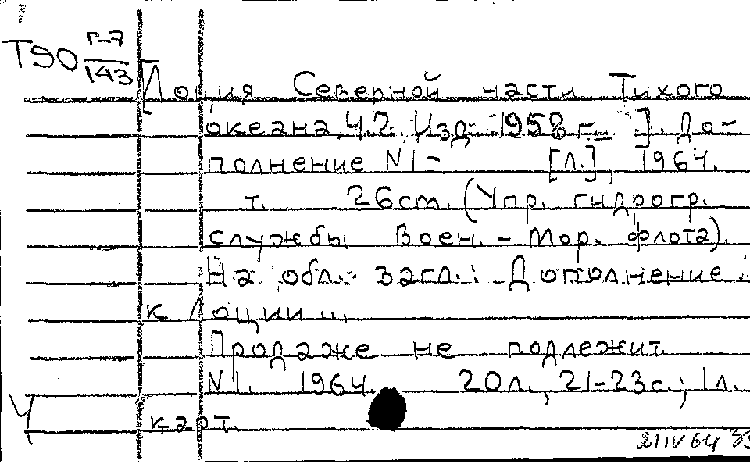 Т90 Г-7
143
[Лоция Северной части Тихого
океана. Ч.2. Изд. 1958 г. ]. До-
полнение N1- [Л.], 1964.
т. 26см. (Упр. гидрогр.
службы Воен.-Мор. флота).
На обл. загл.: Дополнение
к Лоции...
Продаже не подлежит.
N1. 1964. 20л., 21-23с.; 1л.
карт.
21 IV 64